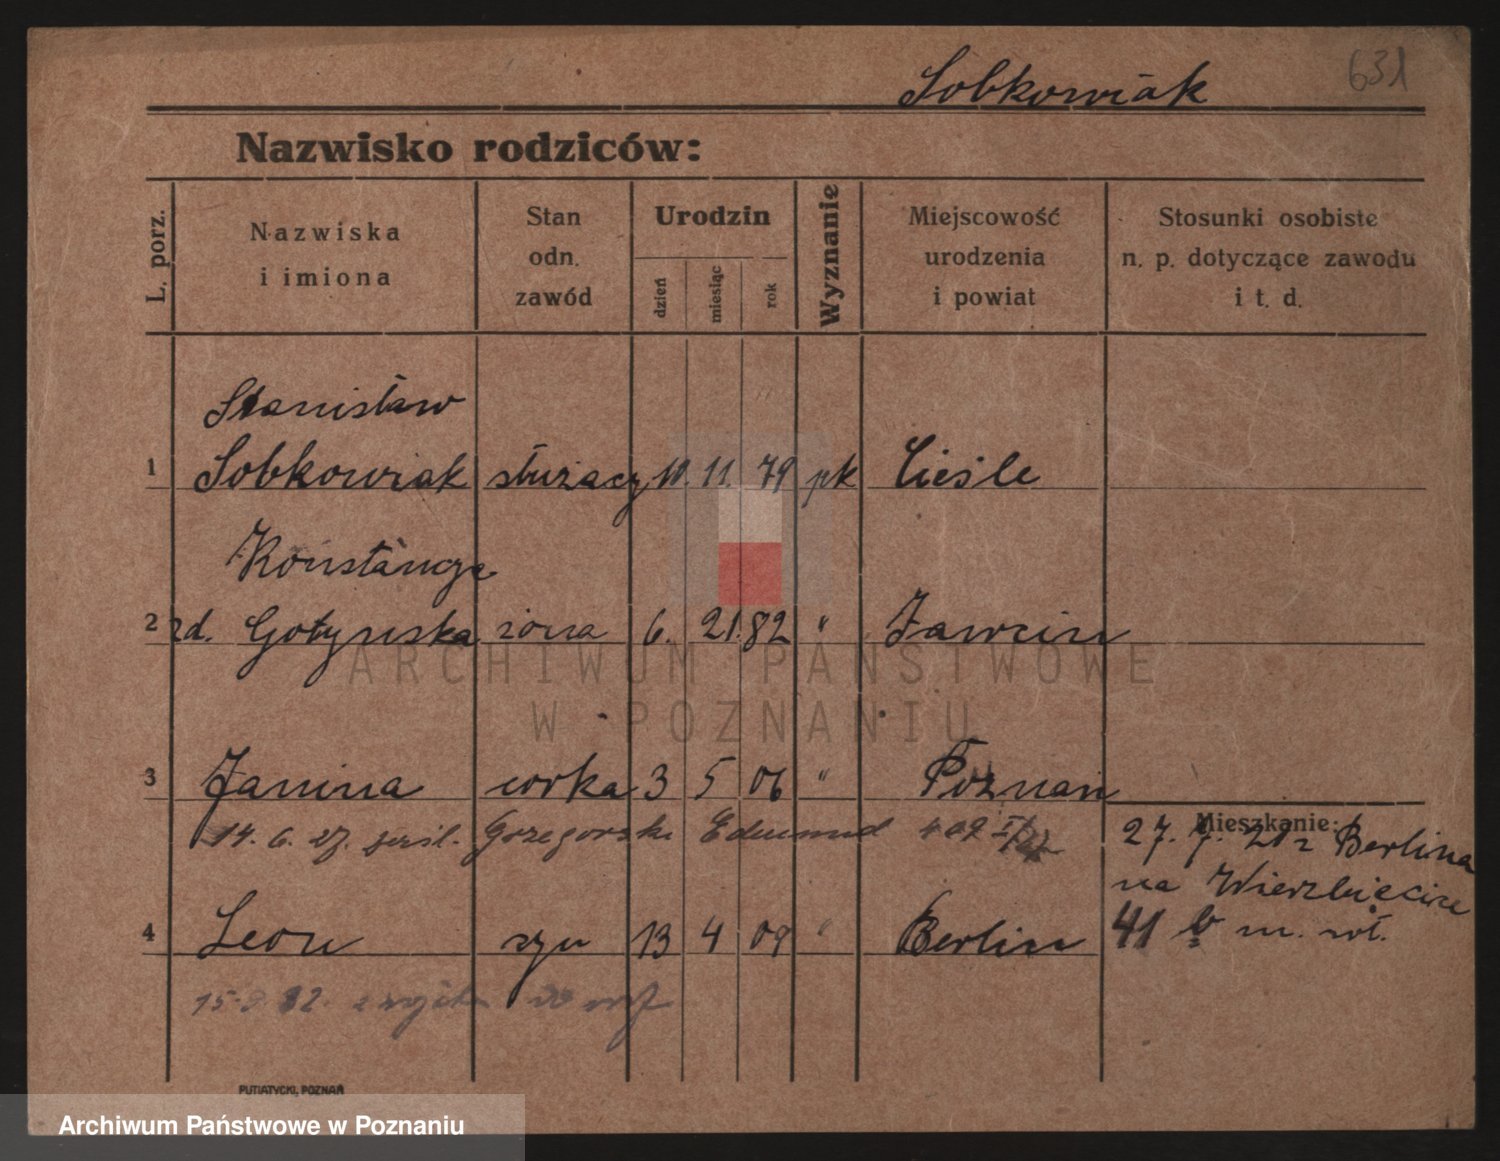 Sobkowiak
631
Nazwisko rodziców:
L. porz.
Nazwiska
i imiona
Stan
odn.
zawód
Urodzin
dzień
miesiąc
rok
Wyznanie
Miejscowość
urodzenia
i powiat
Stosunki osobiste
n. p. dotyczące zawodu
i t. d.
Stanisław
1 Sobkowiak służący 10. 11. 79 pk Cieśle
Konstancja
2 zd. Gołyńska żona 6. 21. 82 " Żawcin
3 Janina córka 3 5 06 " Poznań
14. 6. 27. Grzegorski Edmund
Mieszkanie:
27. 7. 21 z Berlina
na Wierzbięcice
41 b m. wł.
4 Leon syn 13 4 09 " Berlin
15. 9. 32.
PUTIATYCKI, POZNAŃ
ARCHIWUM PAŃSTWOWE
W POZNANIU
Archiwum Państwowe w Poznaniu